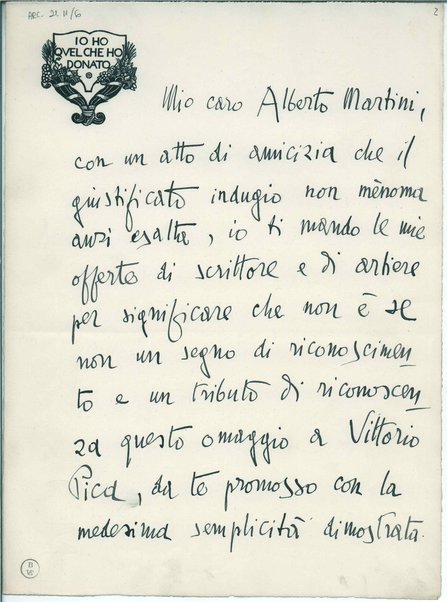 ARC. 21. II/6
2
IO HO
QVEL CHE HO
DONATO
Mio caro Alberto Martini,
con un atto di amicizia che il
giustificato indugio non mènoma
anzi esalta, io ti mando le mie
offerte di scrittore e di artiere
per significare che non è se
non un segno di riconoscimen
to e un tributo di riconoscen
za questo omaggio a Vittorio
Pica, da te promosso con la
medesima semplicità dimostrata
B